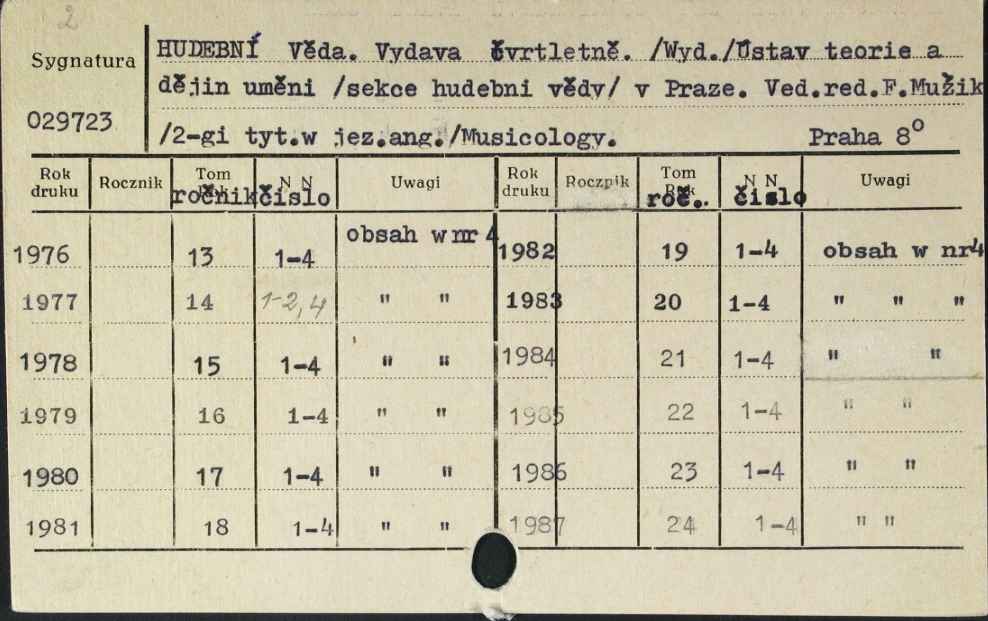 2
Sygnatura
029723
HUDEBNÍ Věda. Vydava čvrtletně. /Wyd./Ústav teorie a
dějin uměni /sekce hudebni vědy/ v Praze. Ved.red.F.Mužik
/2-gi tyt.w jez.ang./Musicology. Praha 8°
Rok druku Rocznik Tom Rok N N Uwagi Rok druku Rocznik Tom Rok N N Uwagi
ročnik čislo roč. čislo
1976 13 1-4 obsah w nr 4 1982 19 1-4 obsah w nr4
1977 14 1-2,4 " " 1983 20 1-4 " " "
1978 15 1-4 " " 1984 21 1-4 " "
1979 16 1-4 " " 1985 22 1-4 " "
1980 17 1-4 " " 1986 23 1-4 " "
1981 18 1-4 " " 1987 24 1-4 " "